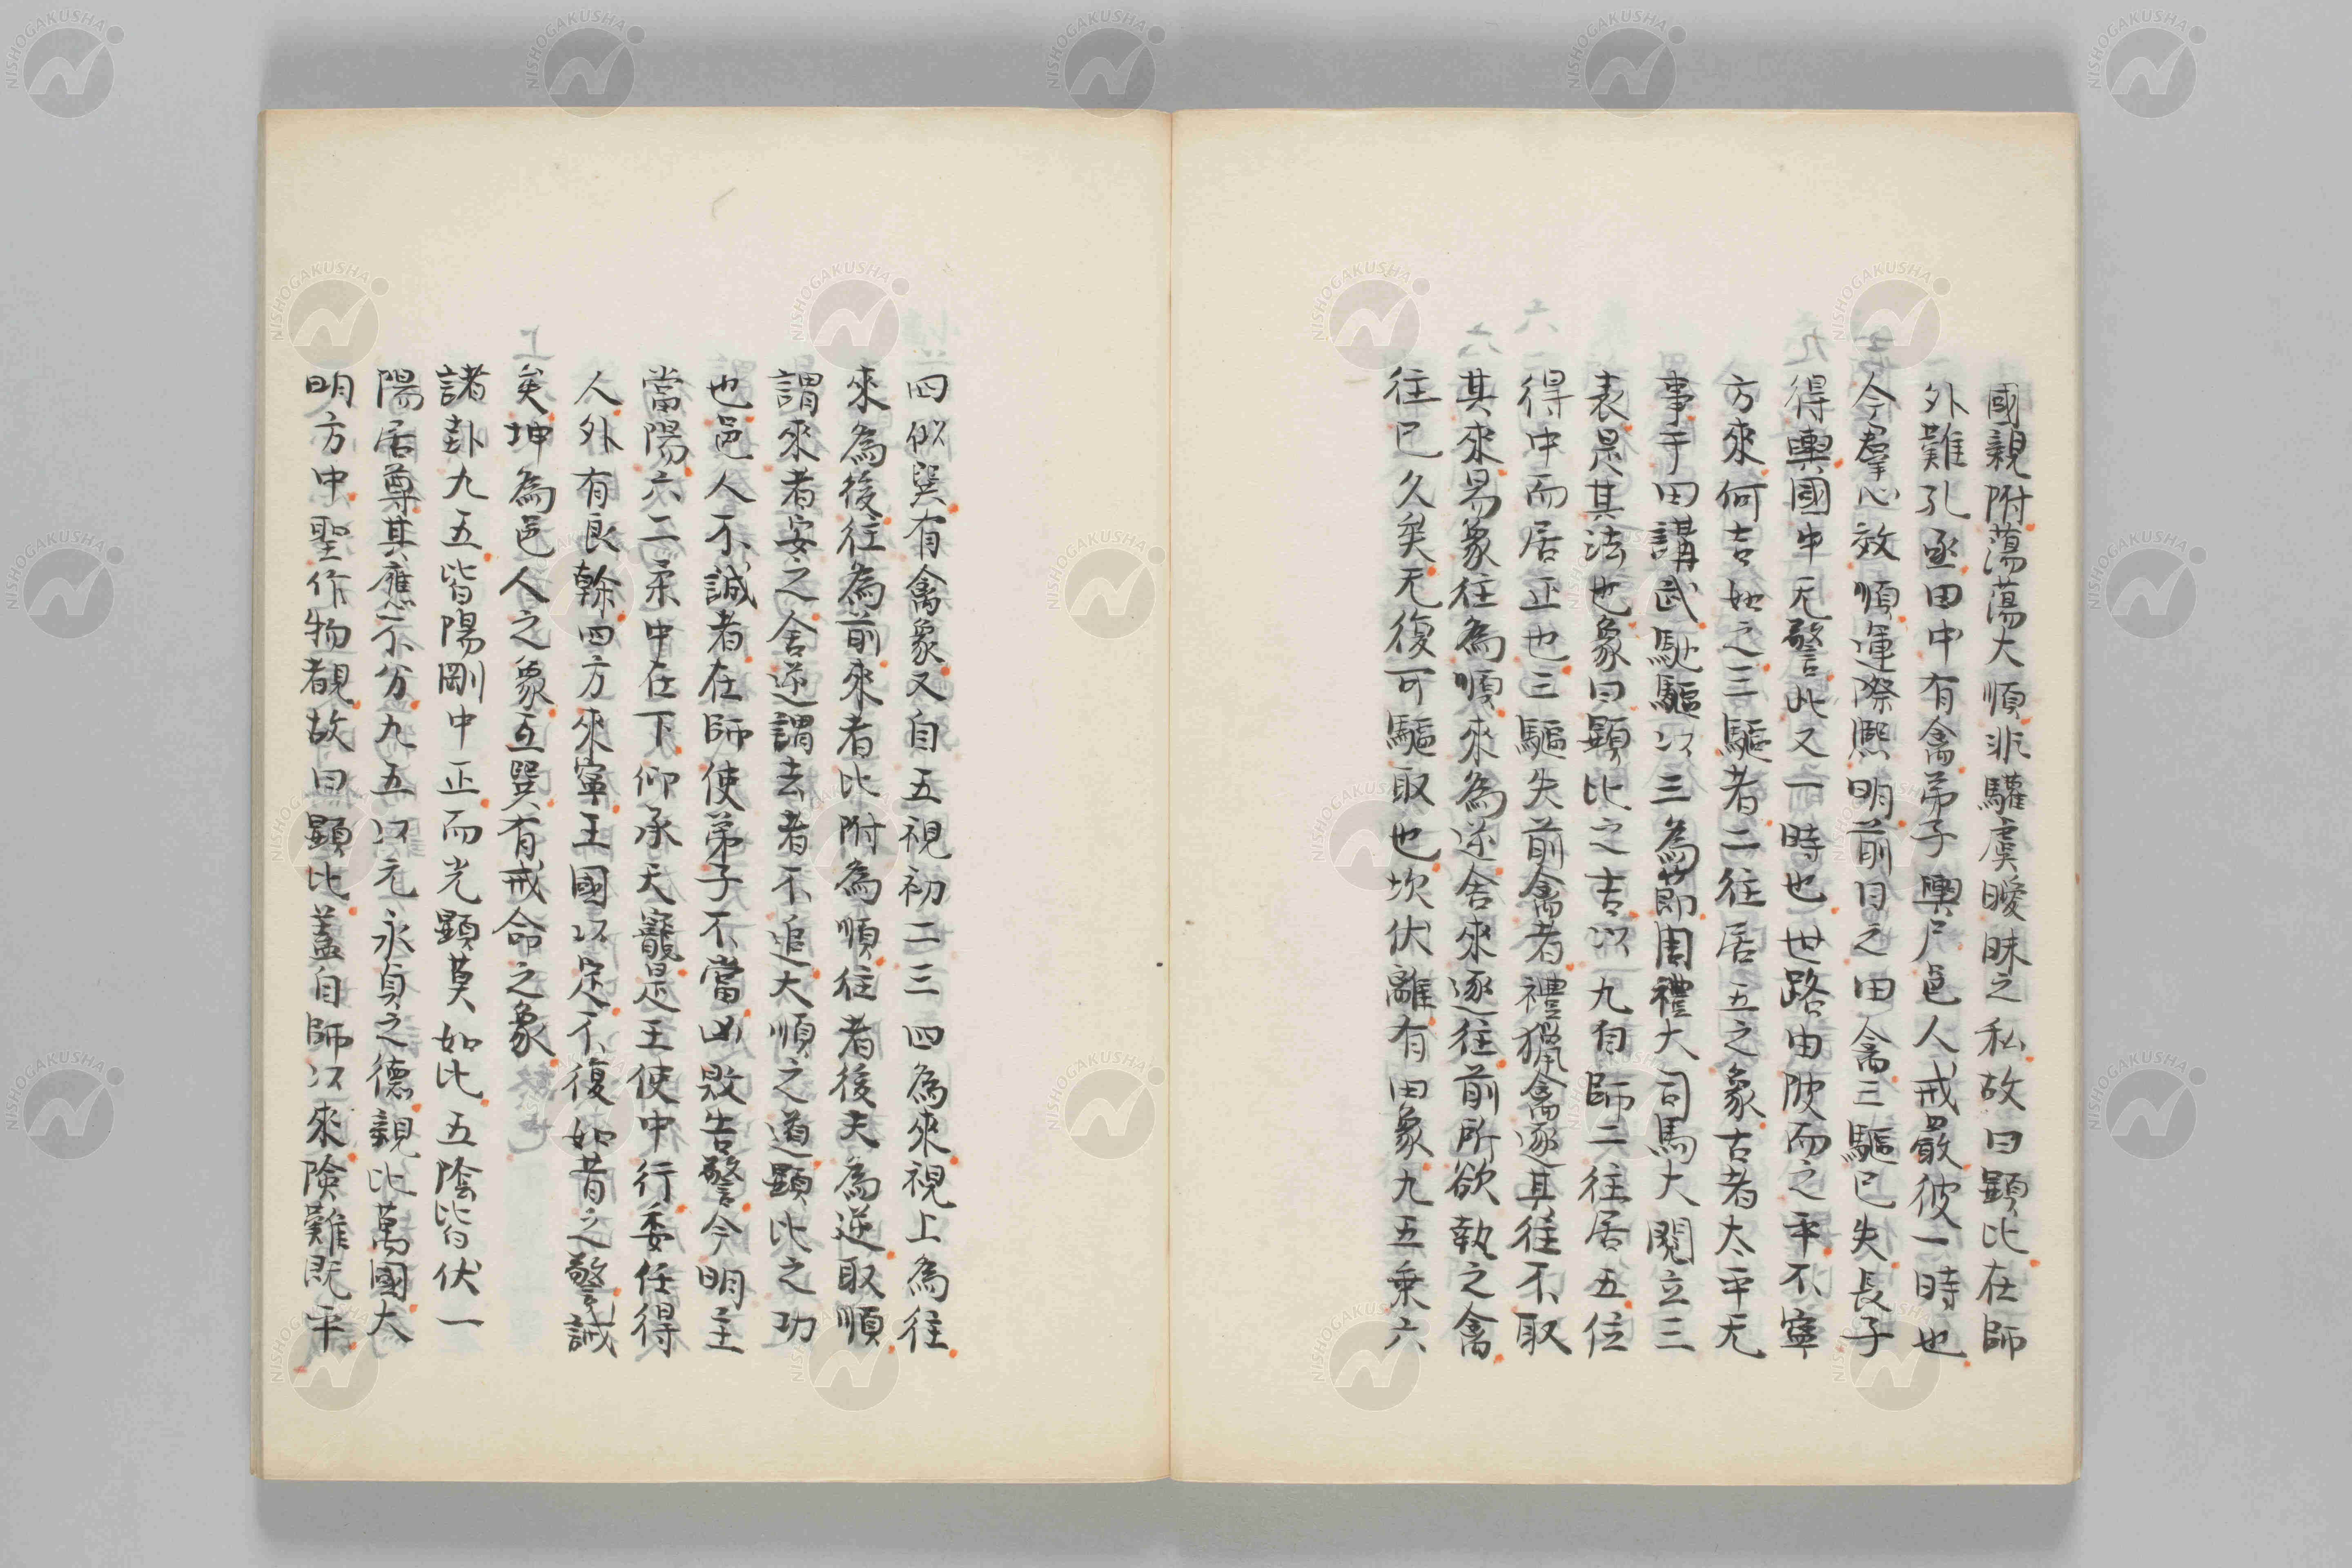 國親附蕩蕩大順非驩虞曖昧之私故曰顯比在師
外難孔亟田中有禽弟子輿尸邑人戒嚴彼一時也
今羣心效順運際熈明前日之田禽三驅已失長子
得輿國中无警此又一時也世路由陂而之平不寧
方來何吉如之三驅者二往居五之象古者太平无
事于田講武馳驅以三為節周禮大司馬大閱立三
表是其法也象曰顯比之吉以九自師二往居五位
得中而居正也三驅失前禽者禮獵禽逐其往不取
其來易象往為順來為逆舍來逐往前所欲執之禽
往已久矣无復可驅取也坎伏離有田象九五乘六
四似巽有禽象又自五視初二三四為來視上為往
來為後往為前來者比附為順往者後夫為逆取順
謂來者安之舍逆謂去者不追大順之道顯比之功
也邑人不誡者在師使弟子不當凶敗告警今明主
當陽六二柔中在下仰承天寵是王使中行委任得
人外有良翰四方來寧王國以定不復如昔之警誡
矣坤為邑人之象互巽有戒命之象
諸卦九五皆陽剛中正而光顯莫如比五陰皆伏一
陽居尊其應不分九五以元永貞之德親比萬國大
明方中聖作物覩故曰顯比蓋自師以來險難既平
NISHOGAKUSHA